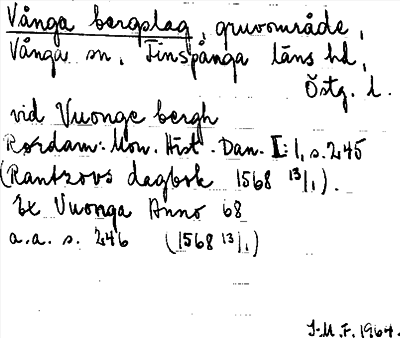 Vånga bergslag, gruvområde,
Vånga sn, Finspånga läns hd,
Östg. l.
vid Vuonge bergh
Rørdam: Mon. Hist. Dan. I:1, s. 245
(Rantzovs dagbok 1568 13/1).
Ex Vuonga Anno 68
a.a. s. 246 (1568 13/1)
J.M.F. 1964.